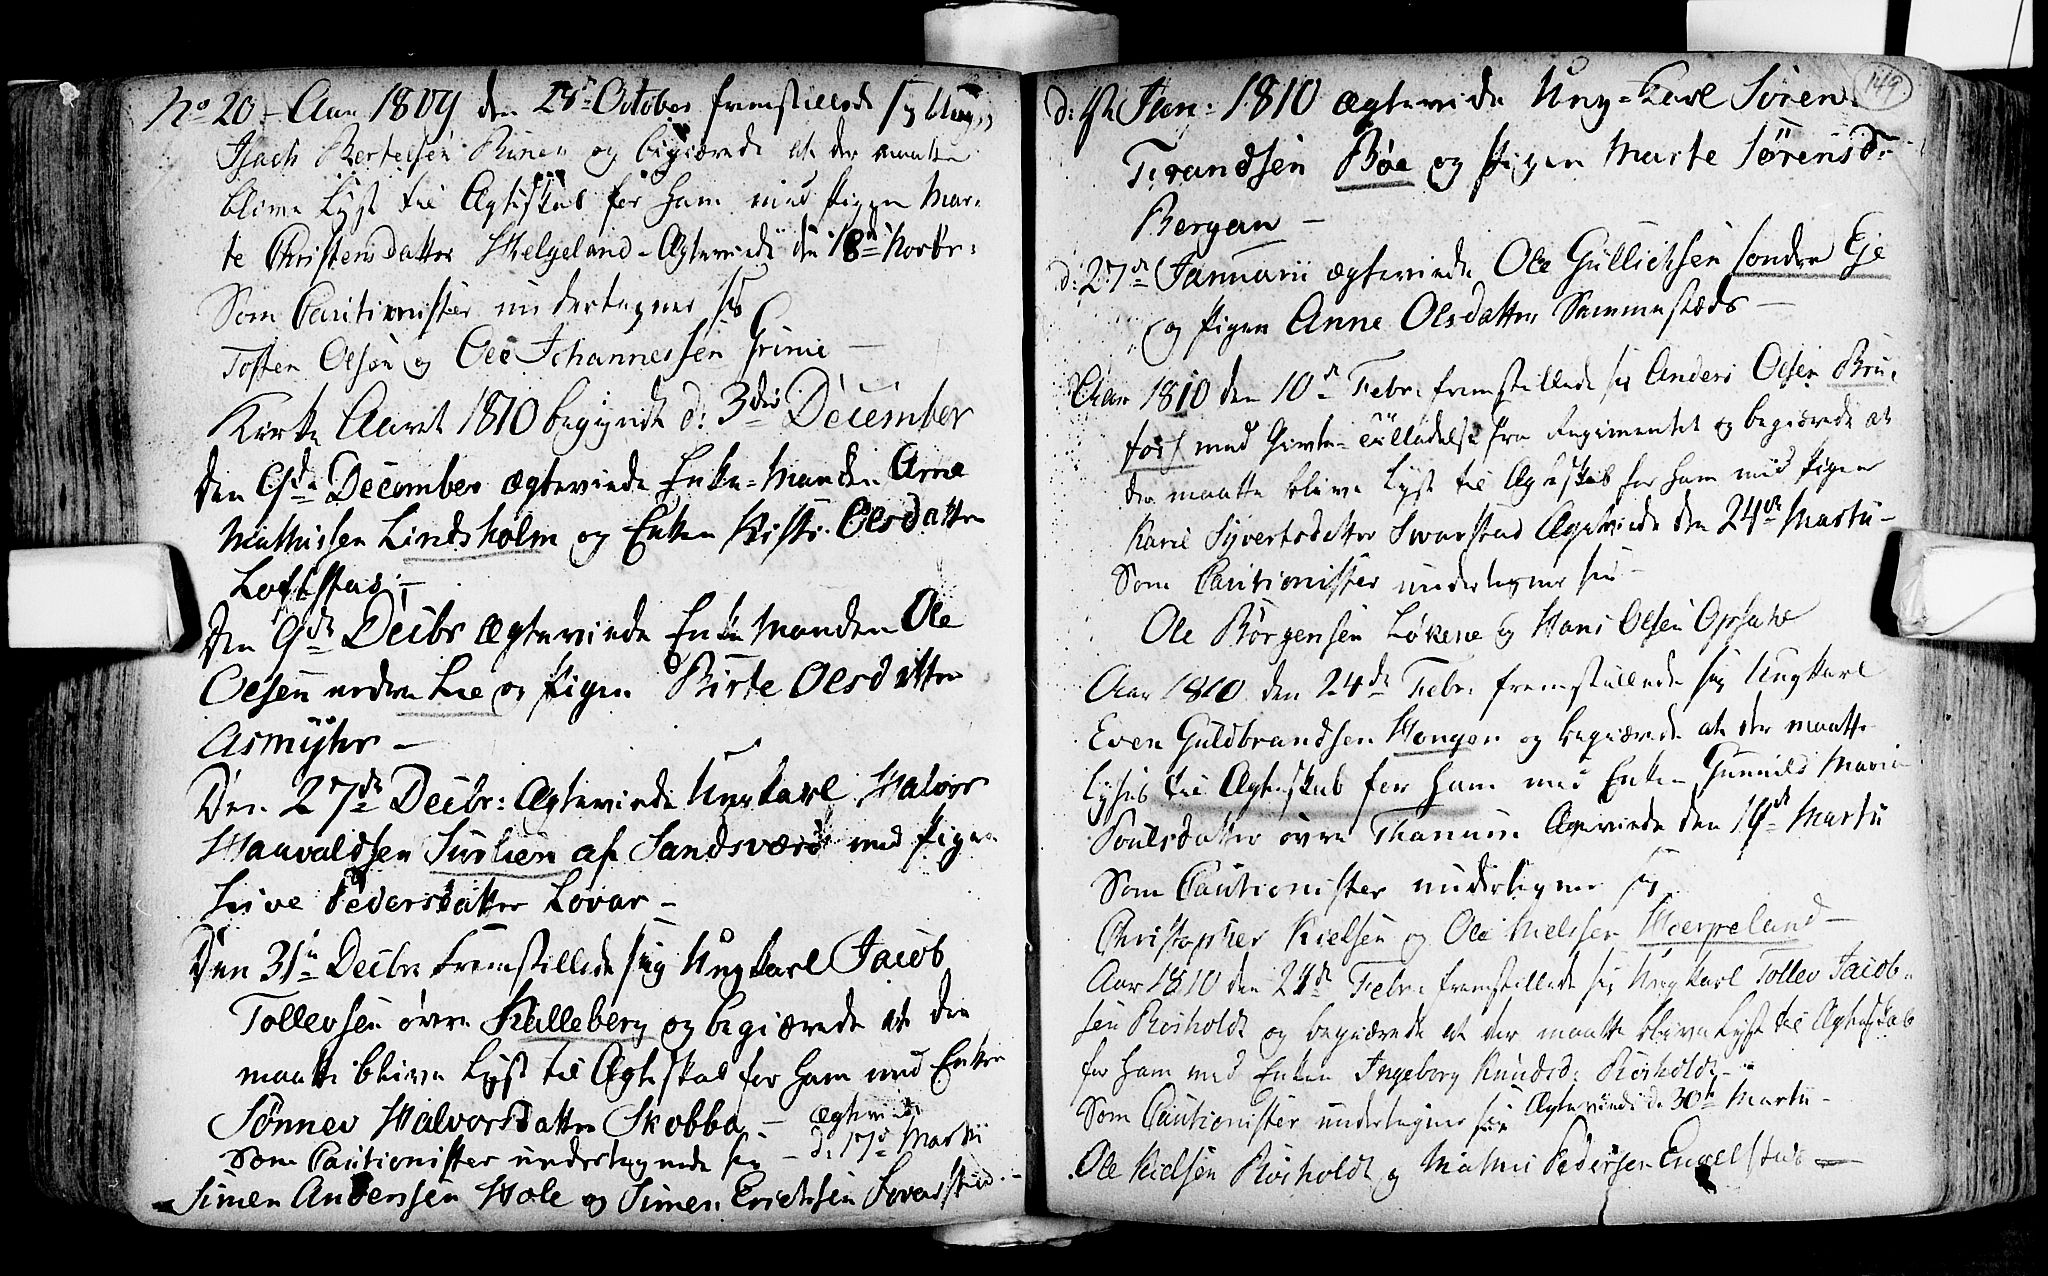 No 20 - Aar 1809 den 28de October fremstillede sig Ung
Isach Bertelsen Runen og begiærede at der maatte
blive Lyst til Ægteskab for ham med Pigen Mar-
te Christensdatter Helgeland - Ægteviede den 18de Novbr:
Som Cautionister undertegner sig
Tosten Olsen og Ole Johannessen Grime -
Kirke Aaret 1810 begyndt d: 3die December
Den 9de December ægteviede Enke-Manden Arne
Mathissen Lindsholm og Enken Kisti Olsdatter
Loftstad; -
Den 9de Decibr ægteviede Enke Manden Ole
Olsen nedre Lie og Pigen Birte Olsdatter
Asmyhr -
Den 27de Decibr: Ægteviede Ungkarl Halvor
Haavaldsen Surlien af Sandsværd med Pigen
Live Pedersdatter Lovar -
Den 31te Decibr fremstillede sig Ungkarl Jacob
Tollevsen övre Kalleberg og begiærede at der
maatte blive Lyst til Ægteskab for ham med Enken
Sønnev Halvorsdatter Skobba - ægteviede
Som Cautionister undertegnede sig - d: 17de Martii
Simen Anderssen Hole og Simen Erichsen Sevarstad -
149
d: Jan: 1810 ægteviede Ung-Karl Sören
Trandsen Böe og Pigen Marte Sörensd:
Bergan -
d: 27de Januarii ægteviede Ole Gullichsen söndre Eje
og Pigen Anne Olsdatter Sammestæds -
Aar 1810 den 10de Febr: fremstillede sig Anders Olsen Bru-
fos med Givte-Tilladelse fra Regimentet og begiærede at
der maatte blive Lyst til Ægteskab for ham med Pigen
Karie Syvertsdatter Svarstad Ægteviede den 24de Martii -
Som Cautionister undertegner sig -
Ole Börgensen Lökene og Hans Olsen Opsahl
Aar 1810 den 24de Febr: fremstillede sig Ungkarl
Even Guldbrandsen Hougen og begiærede at der maatte
lyses til Ægteskab for ham med Enken Gunnild Marie
Poulsdatter övre Thanum Ægteviede den 19de Martii
Som Cautionister undertegner sig
Christopher Nielsen og Ole Nielssen Hierpeland -
Aar 1810 den 24de Febr: fremstillede sig Ungkarl Tollev Jacob-
sen Risholdt og begiærede at der maatte blive Lyst til Ægteskab
for ham med Enken Ingeborg Knudsd: Risholdt -
Som Cautionister undertegner sig Ægteviede d: 30te Martii -
Ole Nielsen Risholdt og Mathis Pedersen Engelstad -